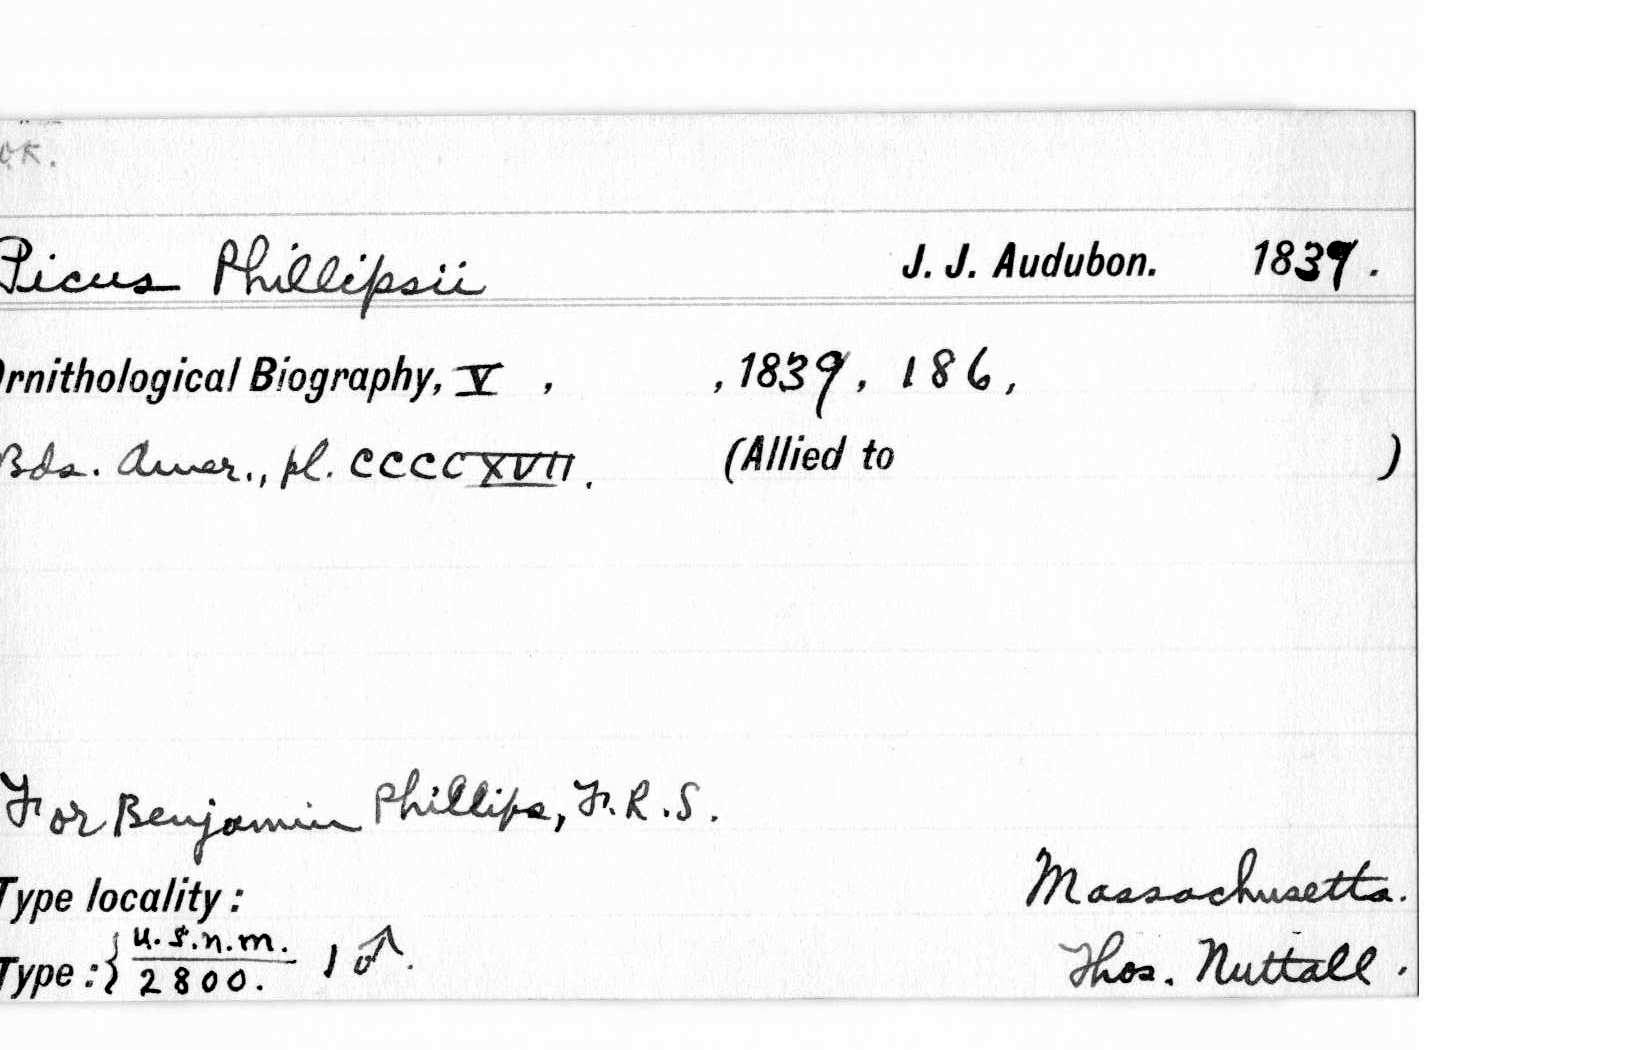 OK.
Picus Phillipsii J. J. Audubon. 1839.
Ornithological Biography, V , , 1839, 186,
Bds. Amer., pl. CCCCXVII. (Allied to )
For Benjamin Phillips, F.R.S.
Type locality: Massachusetts.
Type: { U.S.N.M. 1 ♂. Thos. Nuttall.
2800.